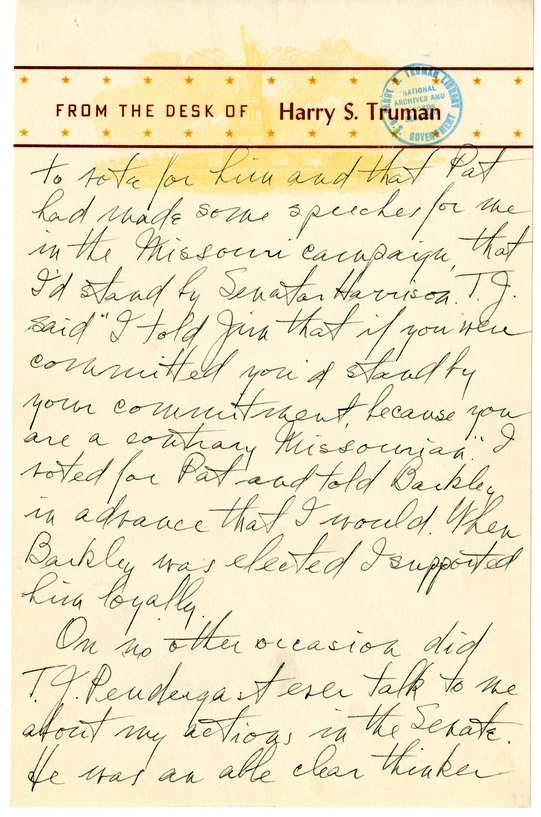 FROM THE DESK OF Harry S. Truman
HARRY S. TRUMAN LIBRARY
NATIONAL
ARCHIVES AND
U.S. GOVERNMENT
to vote for him and that Pat
had made some speeches for me
in the Missouri campaign, that
I'd stand by Senator Harrison. T.J.
said "I told Jim that if you were
committed you'd stand by
your commitment, because you
are a contrary Missourian." I
voted for Pat and told Barkley
in advance that I would. When
Barkley was elected I supported
him loyally.
On no other occasion did
T.J. Pendergast ever talk to me
about my actions in the Senate.
He was an able clear thinker